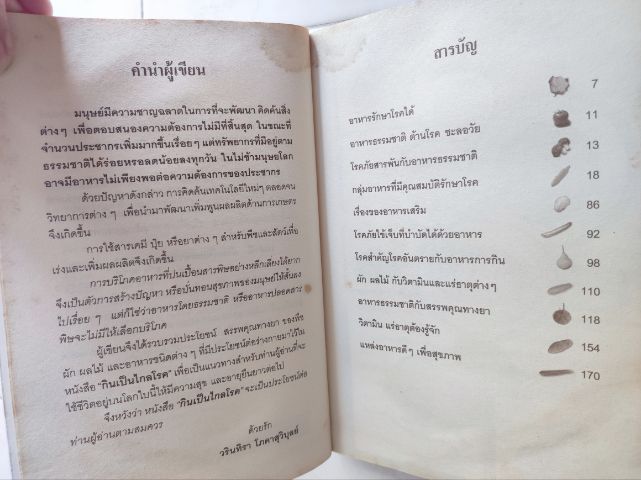 คำนำผู้เขียน
มนุษย์มีความชาญฉลาดในการที่จะพัฒนา คิดค้นสิ่ง
ต่างๆ เพื่อตอบสนองความต้องการไม่มีที่สิ้นสุด ในขณะที่
จำนวนประชากรเพิ่มมากขึ้นเรื่อยๆ แต่ทรัพยากรที่มีอยู่ตาม
ธรรมชาติได้ร่อยหรอลดน้อยลงทุกวัน ในไม่ช้ามนุษย์โลก
อาจมีอาหารไม่เพียงพอต่อความต้องการของประชากร
ด้วยปัญหาดังกล่าว การคิดค้นเทคโนโลยีใหม่ๆ ตลอดจน
วิทยาการต่างๆ เพื่อนำมาพัฒนาเพิ่มพูนผลผลิตด้านการเกษตร
จึงเกิดขึ้น
การใช้สารเคมี ปุ๋ย หรือยาต่างๆ สำหรับพืชและสัตว์เพื่อ
เร่งและเพิ่มผลผลิตจึงเกิดขึ้น
การบริโภคอาหารที่ปนเปื้อนสารพิษอย่างหลีกเลี่ยงได้ยาก
จึงเป็นตัวการสร้างปัญหา หรือบั่นทอนสุขภาพของมนุษย์ให้สั้นลง
ไปเรื่อยๆ แต่ก็ใช่ว่าอาหารโดยธรรมชาติ หรืออาหารปลอดสาร
พิษจะไม่มีให้เลือกบริโภค
ผู้เขียนจึงได้รวบรวมประโยชน์ สรรพคุณทางยา ของพืช
ผัก ผลไม้ และอาหารชนิดต่างๆ ที่มีประโยชน์ต่อร่างกายมาไว้ใน
หนังสือ "กินเป็นไกลโรค" เพื่อเป็นแนวทางสำหรับท่านผู้อ่านที่จะ
ใช้ชีวิตอยู่บนโลกใบนี้ให้มีความสุข และอายุยืนยาวต่อไป
จึงหวังว่า หนังสือ "กินเป็นไกลโรค" จะเป็นประโยชน์ต่อ
ท่านผู้อ่านตามสมควร
ด้วยรัก
วรินทิรา โภคาสุวิบุลย์
สารบัญ
7
อาหารรักษาโรคได้ 11
อาหารธรรมชาติ ต้านโรค ชะลอวัย 13
โรคภัยสารพันกับอาหารธรรมชาติ 18
กลุ่มอาหารที่มีคุณสมบัติรักษาโรค 86
เรื่องของอาหารเสริม 92
โรคภัยไข้เจ็บที่บำบัดได้ด้วยอาหาร 98
โรคสำคัญโรคอันตรายกับอาหารการกิน 110
ผัก ผลไม้ กับวิตามินและแร่ธาตุต่างๆ 118
อาหารธรรมชาติกับสรรพคุณทางยา 154
วิตามิน แร่ธาตุต้องรู้จัก 170
แหล่งอาหารดีๆ เพื่อสุขภาพ